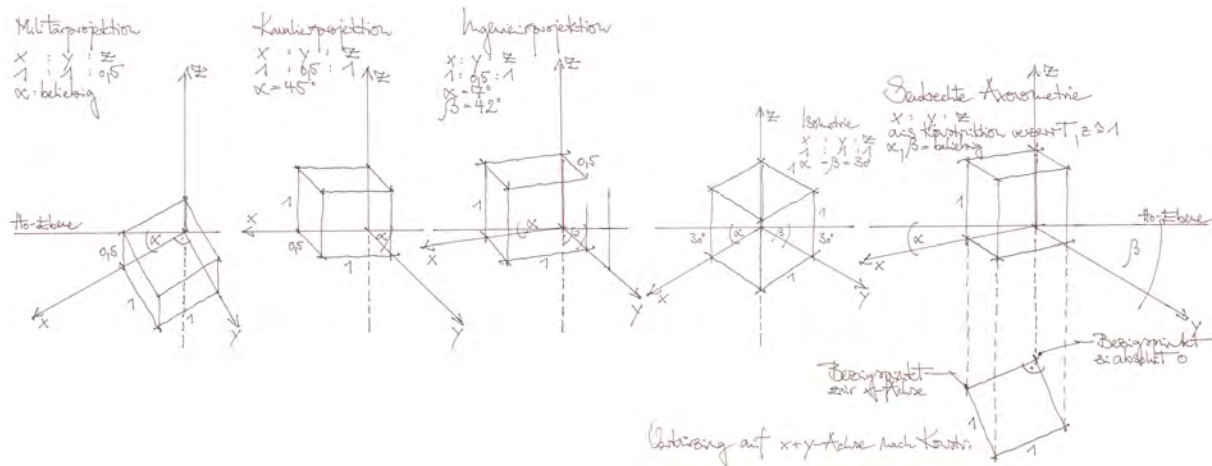 Militärprojektion
x : y : z
1 : 1 : 0,5
α: beliebig
z
Ho-Ebene
0,5
α
1
1
x
y
Kavalierprojektion
x : y : z
1 : 0,5 : 1
α = 45°
z
x
1
0,5
α
1
y
Ingenieurprojektion
x : y : z
1 : 0,5 : 1
α = 7°
β = 42°
z
0,5
1
α
β
x
1
y
Isometrie
x : y : z
1 : 1 : 1
α = β = 30°
z
1
1
30°
α
β
30°
1
x
y
Senkrechte Axonometrie
x : y : z
aus Konstruktion verzerrt, z ≙ 1
α, β = beliebig
z
1
Ho-Ebene
α
β
x
y
Bezugspunkt
zu absolut 0
Bezugspunkt
zur x-Achse
1
1
Verkürzung auf x+y-Achse nach Konstr.